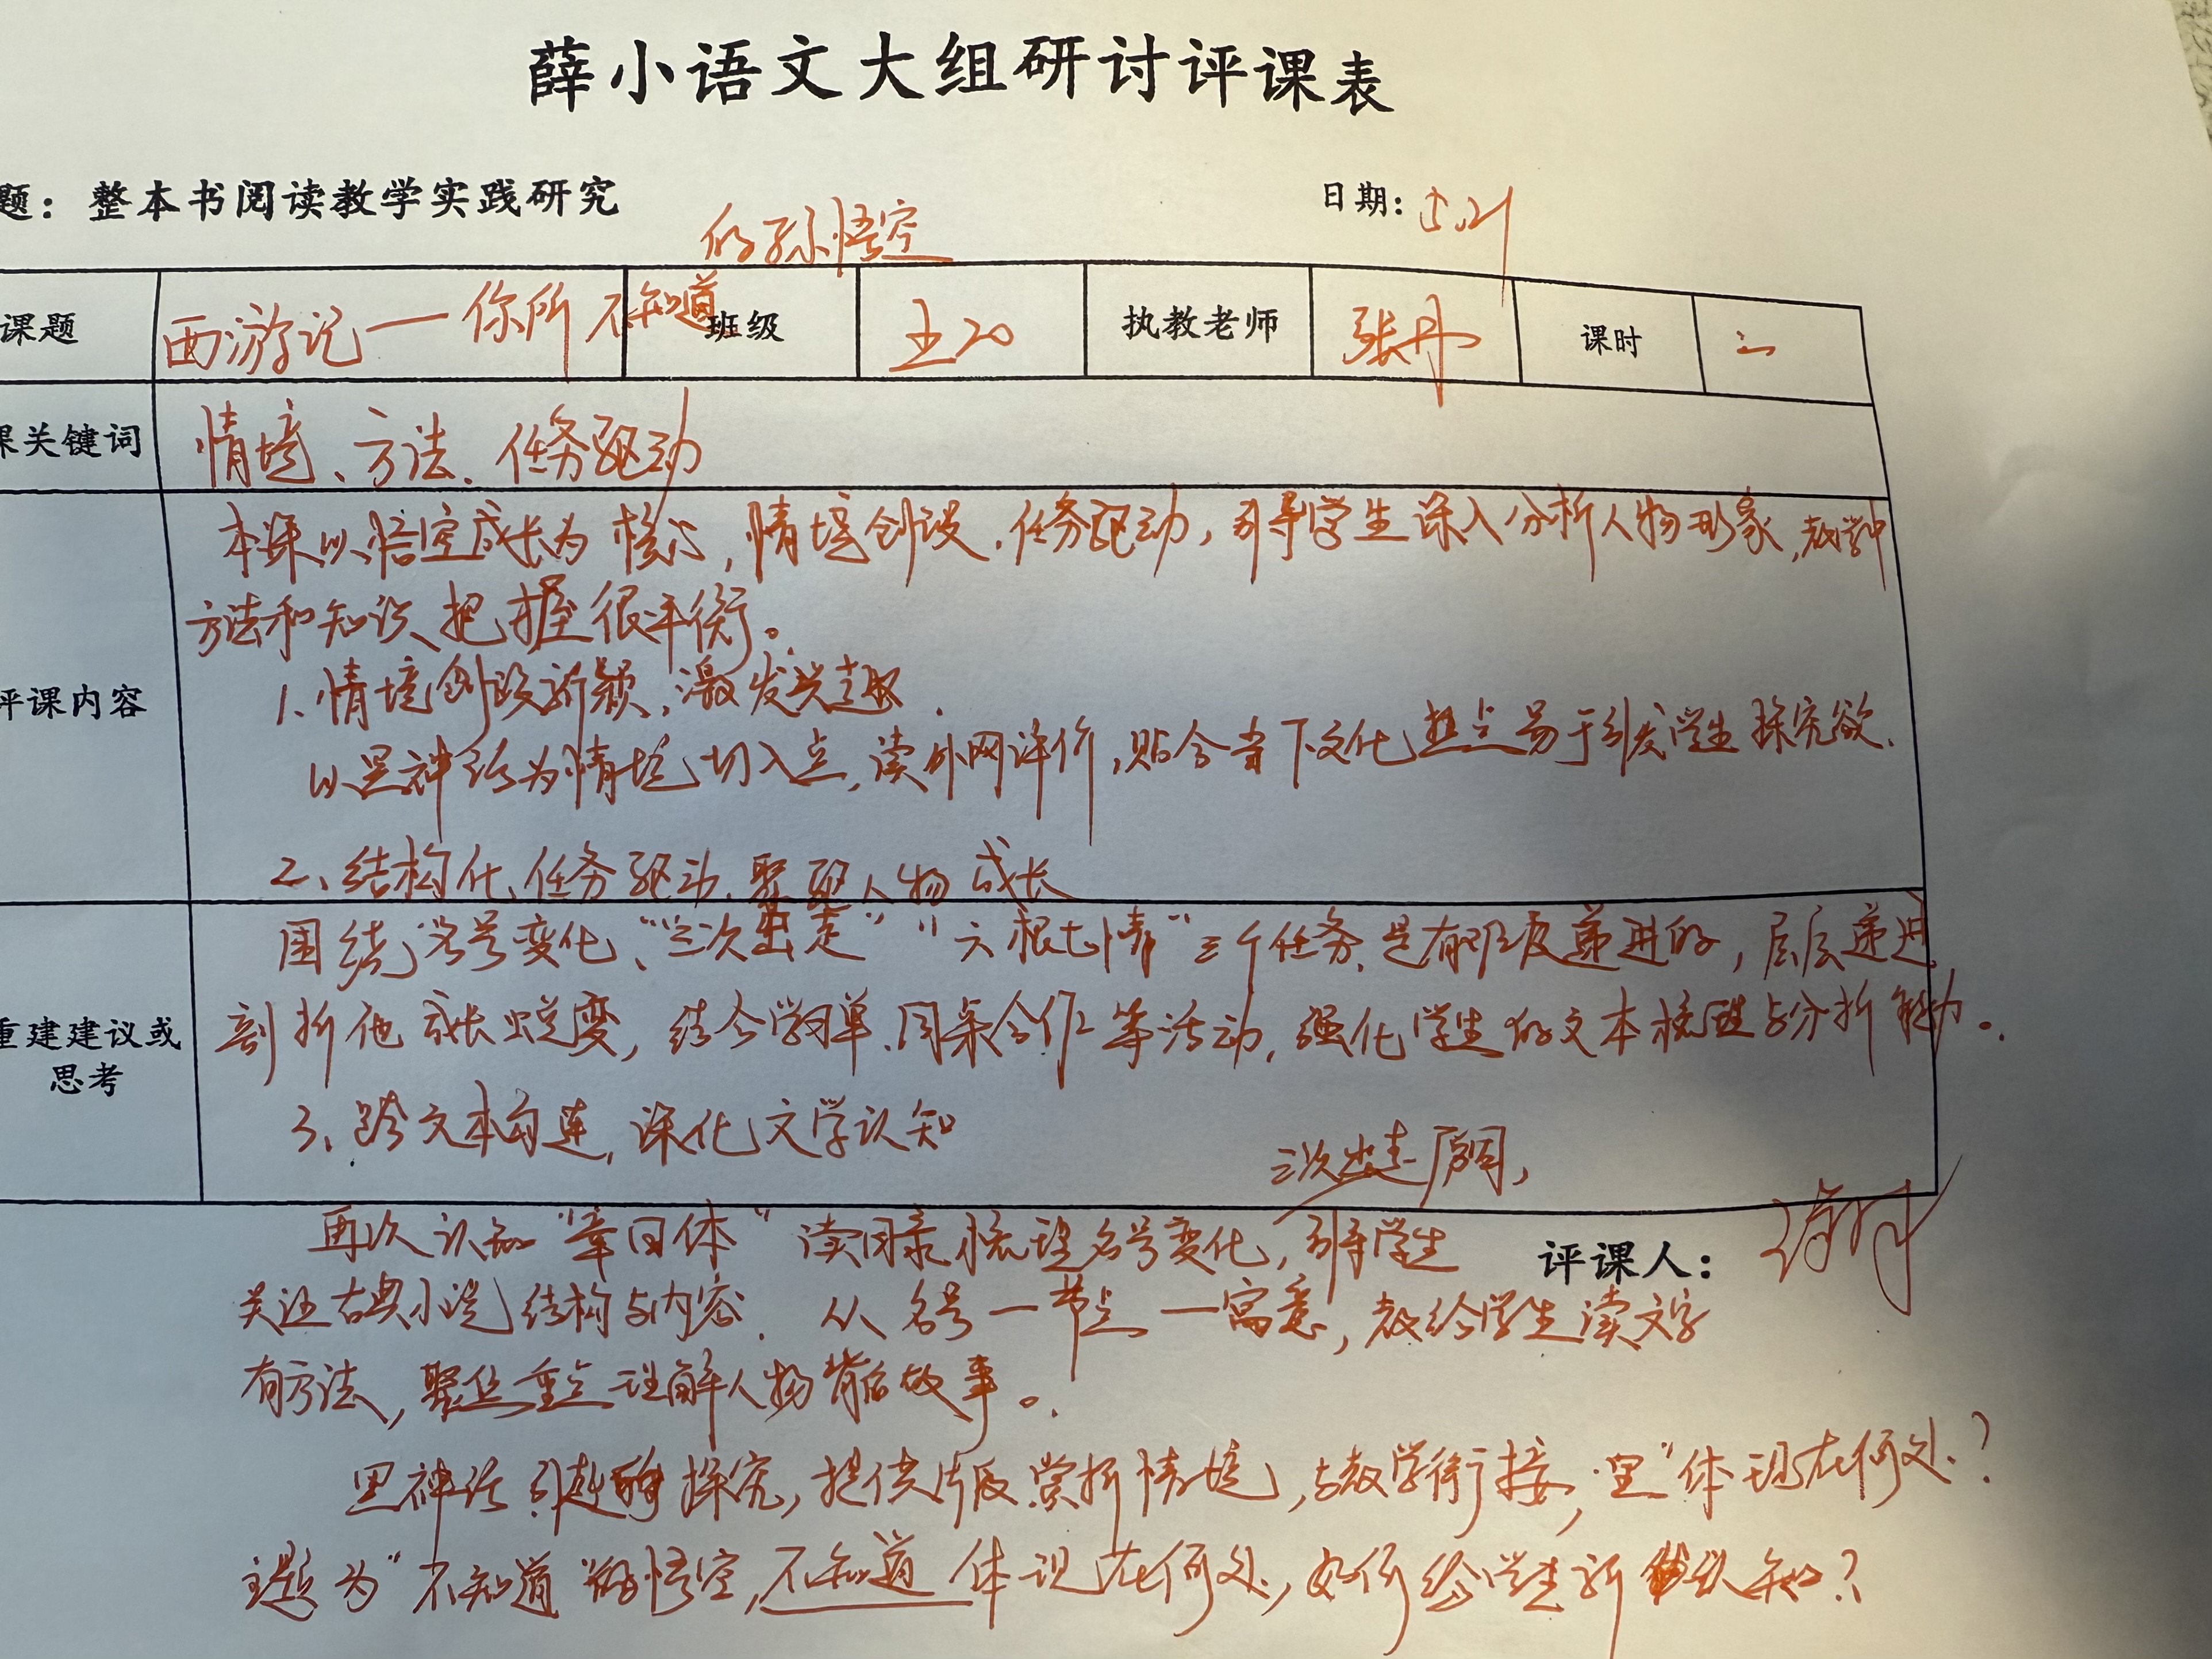 薛小语文大组研讨评课表
题：整本书阅读教学实践研究
日期：5.21
的孙悟空
课题 西游记一你所不知道 班级 五20 执教老师 张丹 课时 二
课关键词 情境、方法、任务驱动
本课以悟空成长为核心，情境创设，任务驱动，引导学生深入分析人物形象，教学中
方法和知识把握很平衡。
评课内容
1、情境创设新颖，激发兴趣
以黑神话为情境切入点，读外网评价，贴合当下文化热点易于引发学生探究欲.
2、结构化任务驱动，聚驱人物成长
围绕名号变化、"三次出走""六根七情"三个任务，是有难度递进的，层层递进
重建建议或
思考
剖析他成长蜕变，结合学习单、同桌合作等活动，强化学生的文本梳理与分析能力。
3、跨文本勾连，深化文学认知
三次出走原因，
再次认知"章回体"读目录梳理名号变化，引导学生
评课人：
关注古典小说结构与内容. 从名号一节点一寓意，教给学生读文字
有方法，聚焦重点理解人物背后故事。
黑神话引起探究，提供片段赏析情境，与教学衔接，"黑"体现在何处？
主题为"不知道"的悟空，不知道体现在何处，如何给学生新认知？